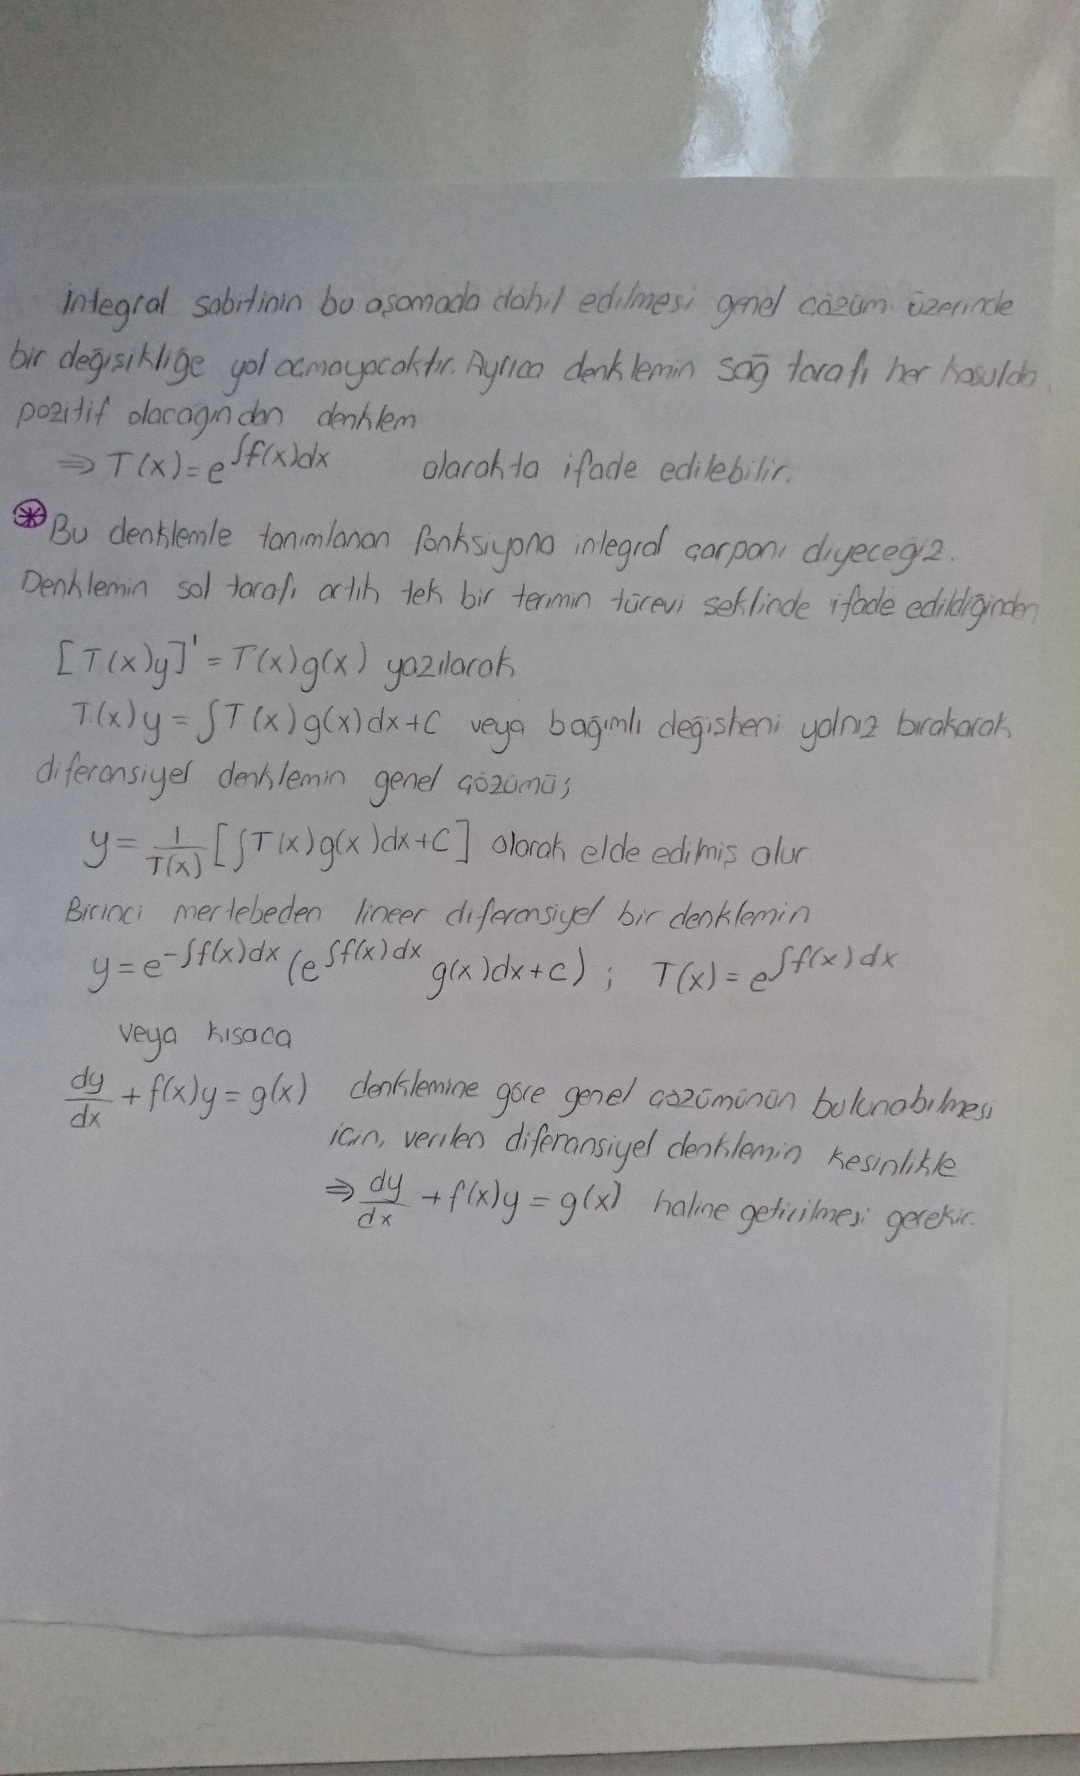 İntegral sabitinin bu aşamada dahil edilmesi genel çözüm üzerinde
bir değişikliğe yol açmayacaktır. Ayrıca denklemin sağ tarafı her koşulda
pozitif olacağından denklem
⇒ T(x)=e^∫f(x)dx olarakta ifade edilebilir.
⊛ Bu denklemle tanımlanan fonksiyona integral çarpanı diyeceğiz.
Denklemin sol tarafı artık tek bir terimin türevi seklinde ifade edildiğinden
[T(x)y]' = T(x)g(x) yazılarak
T(x)y = ∫T(x)g(x)dx+C veya bağımlı değişkeni yalnız bırakarak
diferansiyel denklemin genel çözümü;
y = 1/T(x) [∫T(x)g(x)dx+C] olarak elde edilmiş olur
Birinci mertebeden lineer diferansiyel bir denklemin
y=e^-∫f(x)dx (e^∫f(x)dx g(x)dx+c) ; T(x) = e^∫f(x)dx
veya kısaca
dy/dx + f(x)y = g(x) denklemine göre genel çözümünün bulunabilmesi
için, verilen diferansiyel denklemin kesinlikle
⇒ dy/dx + f(x)y = g(x) haline getirilmesi gerekir.